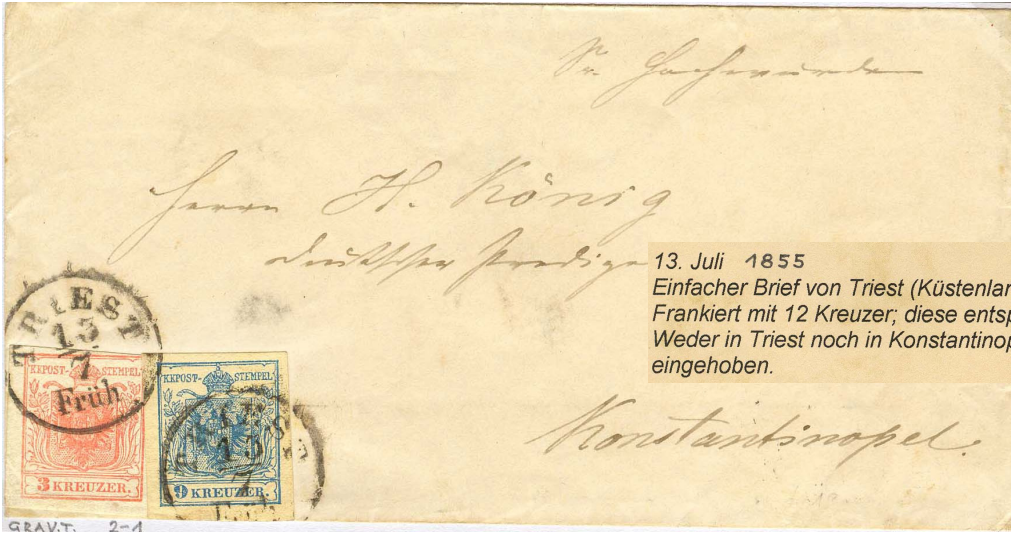 Sr. Hochwürden
Herrn H. König
deutscher Predige
13. Juli 1855
Einfacher Brief von Triest (Küstenlan
Frankiert mit 12 Kreuzer; diese entsp
Weder in Triest noch in Konstantinop
eingehoben.
Konstantinopel.
TRIEST
13
7
Früh
KKPOST-STEMPEL
3 KREUZER.
KKPOST-STEMPEL
9 KREUZER.
13
7
GRAV.T. 2-1